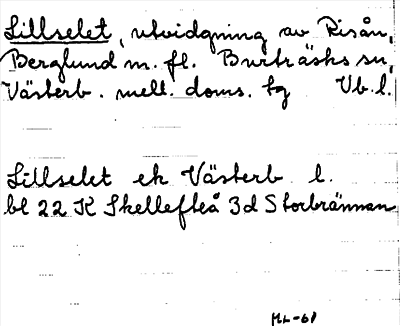 Lillselet, utvidgning av Risån,
Berglund m. fl. Burträsks sn,
Västerb. mell. doms. tg Vb. l.
Lillselet ek Västerb l.
bl 22 K Skellefteå 3d Storbrännan
ML-61